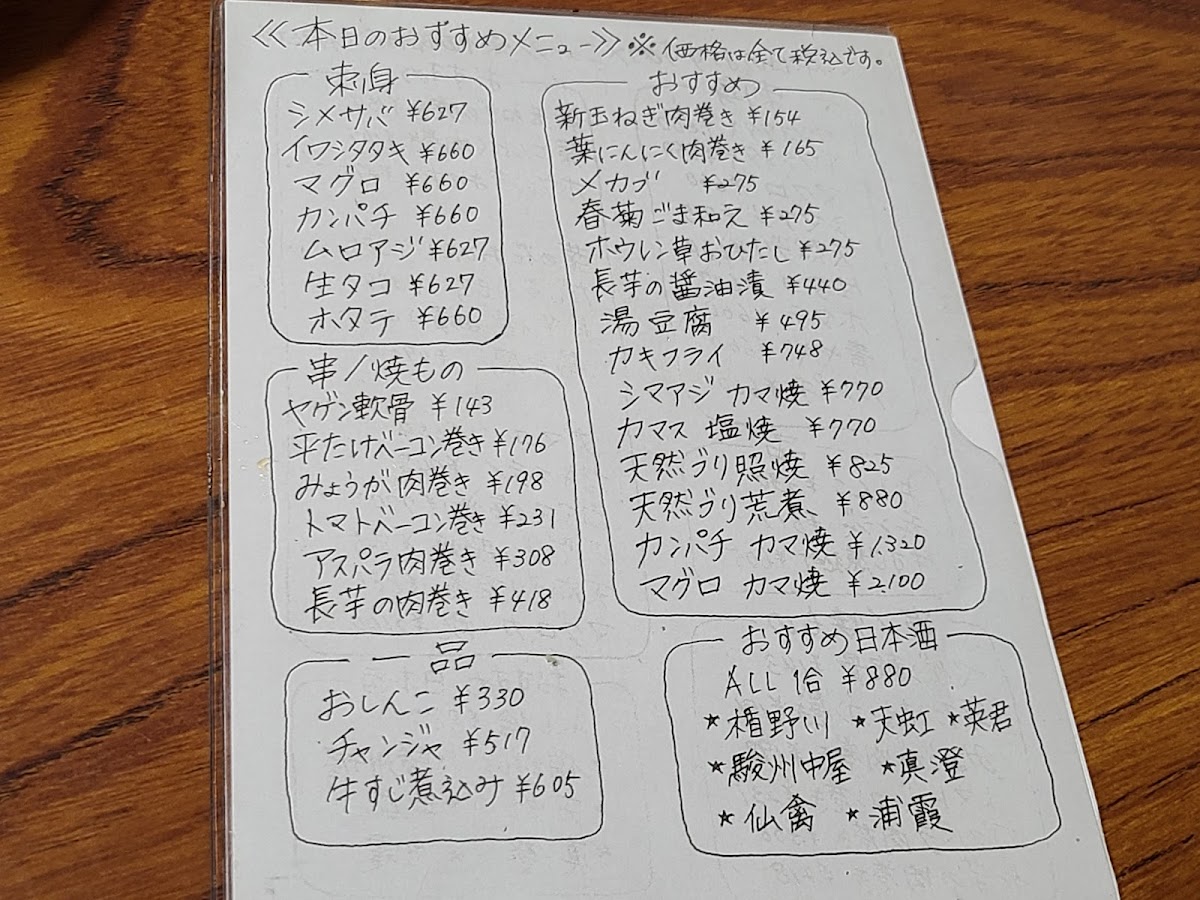 ≪本日のおすすめメニュー≫ ※価格は全て税込です。
刺身
シメサバ ¥627
イワシタタキ ¥660
マグロ ¥660
カンパチ ¥660
ムロアジ ¥627
生タコ ¥627
ホタテ ¥660
串/焼もの
ヤゲン軟骨 ¥143
平たけベーコン巻き ¥176
みょうが肉巻き ¥198
トマトベーコン巻き ¥231
アスパラ肉巻き ¥308
長芋の肉巻き ¥418
一品
おしんこ ¥330
チャンジャ ¥517
牛すじ煮込み ¥605
おすすめ
新玉ねぎ肉巻き ¥154
葉にんにく肉巻き ¥165
メカブ ¥275
春菊ごま和え ¥275
ホウレン草おひたし ¥275
長芋の醤油漬 ¥440
湯豆腐 ¥495
カキフライ ¥748
シマアジ カマ焼 ¥770
カマス 塩焼 ¥770
天然ブリ照焼 ¥825
天然ブリ荒煮 ¥880
カンパチ カマ焼 ¥1,320
マグロ カマ焼 ¥2,100
おすすめ日本酒
ALL 1合 ¥880
★楯野川 ★天虹 ★英君
★駿州中屋 ★真澄
★仙禽 ★浦霞